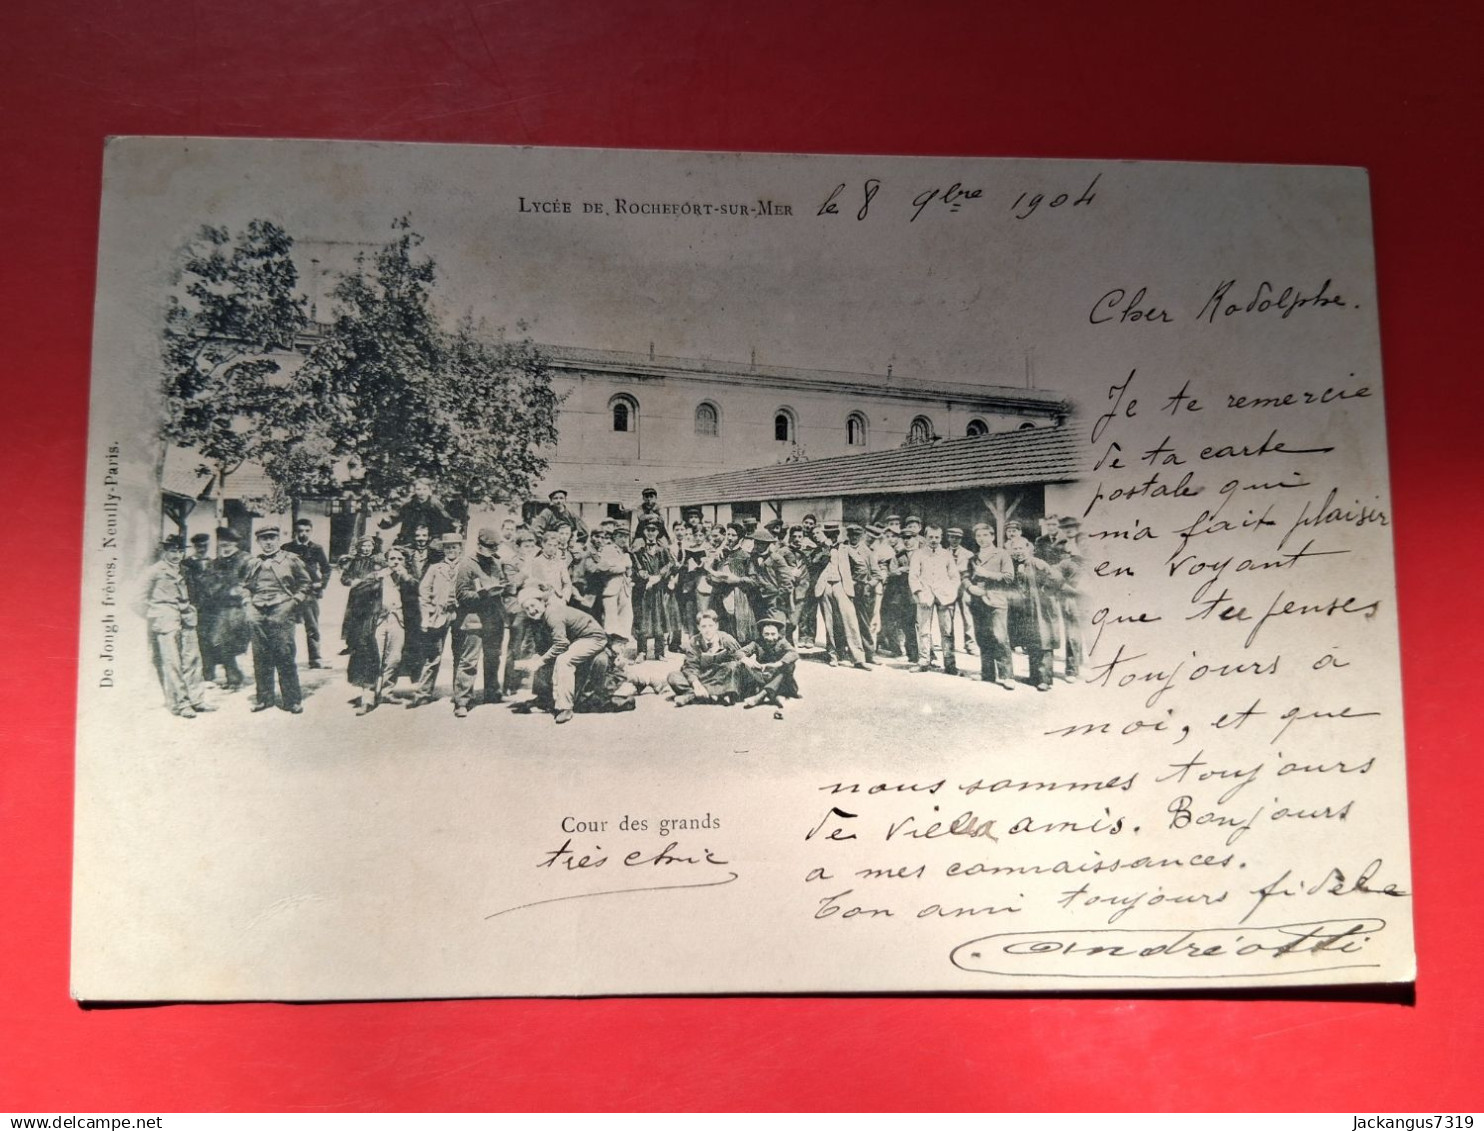 LYCÉE DE ROCHEFORT-SUR-MER le 8 9bre 1904
Cher Rodolphe.
Je te remercie
de ta carte
postale qui
m'a fait plaisir
en voyant
que tu penses
toujours à
moi, et que
nous sommes toujours
de vieux amis. Bonjours
a mes connaissances.
Ton ami toujours fidèle
Andréotti
Cour des grands
très chic
De Jongh frères, Neuilly-Paris.
delcampe.net
jackangus7319